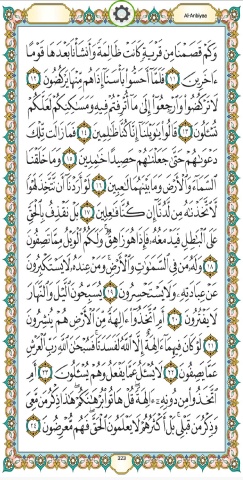 Al-Anbiyaa
وَكَمْ قَصَمْنَا مِن قَرْيَةٍ كَانَتْ ظَالِمَةً وَأَنشَأْنَا بَعْدَهَا قَوْمًا
ءَاخَرِينَ ١١ فَلَمَّآ أَحَسُّوا۟ بَأْسَنَآ إِذَا هُم مِّنْهَا يَرْكُضُونَ ١٢
لَا تَرْكُضُوا۟ وَٱرْجِعُوٓا۟ إِلَىٰ مَآ أُتْرِفْتُمْ فِيهِ وَمَسَٰكِنِكُمْ لَعَلَّكُمْ
تُسْـَٔلُونَ ١٣ قَالُوا۟ يَٰوَيْلَنَآ إِنَّا كُنَّا ظَٰلِمِينَ ١٤ فَمَا زَالَت تِّلْكَ
دَعْوَىٰهُمْ حَتَّىٰ جَعَلْنَٰهُمْ حَصِيدًا خَٰمِدِينَ ١٥ وَمَا خَلَقْنَا
ٱلسَّمَآءَ وَٱلْأَرْضَ وَمَا بَيْنَهُمَا لَٰعِبِينَ ١٦ لَوْ أَرَدْنَآ أَن نَّتَّخِذَ لَهْوًا
لَّٱتَّخَذْنَٰهُ مِن لَّدُنَّآ إِن كُنَّا فَٰعِلِينَ ١٧ بَلْ نَقْذِفُ بِٱلْحَقِّ
عَلَى ٱلْبَٰطِلِ فَيَدْمَغُهُۥ فَإِذَا هُوَ زَاهِقٌ ۚ وَلَكُمُ ٱلْوَيْلُ مِمَّا تَصِفُونَ
١٨ وَلَهُۥ مَن فِى ٱلسَّمَٰوَٰتِ وَٱلْأَرْضِ ۚ وَمَنْ عِندَهُۥ لَا يَسْتَكْبِرُونَ
عَنْ عِبَادَتِهِۦ وَلَا يَسْتَحْسِرُونَ ١٩ يُسَبِّحُونَ ٱلَّيْلَ وَٱلنَّهَارَ
لَا يَفْتُرُونَ ٢٠ أَمِ ٱتَّخَذُوٓا۟ ءَالِهَةً مِّنَ ٱلْأَرْضِ هُمْ يُنشِرُونَ
٢١ لَوْ كَانَ فِيهِمَآ ءَالِهَةٌ إِلَّا ٱللَّهُ لَفَسَدَتَا ۚ فَسُبْحَٰنَ ٱللَّهِ رَبِّ ٱلْعَرْشِ
عَمَّا يَصِفُونَ ٢٢ لَا يُسْـَٔلُ عَمَّا يَفْعَلُ وَهُمْ يُسْـَٔلُونَ ٢٣ أَمِ
ٱتَّخَذُوا۟ مِن دُونِهِۦٓ ءَالِهَةً ۖ قُلْ هَاتُوا۟ بُرْهَٰنَكُمْ ۖ هَٰذَا ذِكْرُ مَن مَّعِىَ
وَذِكْرُ مَن قَبْلِى ۗ بَلْ أَكْثَرُهُمْ لَا يَعْلَمُونَ ٱلْحَقَّ ۖ فَهُم مُّعْرِضُونَ ٢٤
323